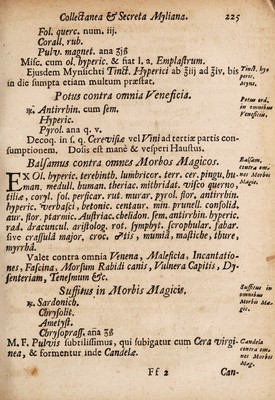 Collectanea & Secreta Myliana. 225
Fol. querc. num. iij.
Corall. rub.
Pulv. magnet. ana ʒiß
Misc. cum ol. hyperic. & fiat l. a. Emplastrum.
Ejusdem Mynsichti Tinct. Hyperici ab ℥iij ad ℥iv. bis
in die sumpta etiam multum præstat.
Tinct. hy-
peric.
Mynf.
Potus contra omnia Veneficia.
Potus ord.
in omnibus
Veneficiis
℞. Antirrhin. cum sem.
Hyperic.
Pyrol. ana q. v.
Decoq. in s. q. Cerevisiæ vel Vini ad tertiæ partis con-
sumptionem. Dosis est manè & vesperi Haustus.
Balsamus contra omnes Morbos Magicos.
Balsam.
contra om-
nes Morbos
Magic.
EX Ol. hyperic. terebinth. lumbricor. terr. cer. pingu. hu-
man. medull. human. theriac. mithridat. visco querno,
tiliæ, coryl. fol. persicar. rut. murar. pyrol. flor. antirrhin.
hyperic. verbasci, betonic. centaur. min. prunell. consolid.
aur. flor. ptarmic. Austriac. chelidon. sem. antirrhin. hyperic.
rad. dracuncul. aristolog. rot. symphyt. scrophular. fabar.
sive crassulâ major, croc. ♂tis, mumiâ, mastiche, thure,
myrrhâ.
Valet contra omnia Venena, Maleficia, Incantatio-
nes, Fascina, Morsum Rabidi canis, Vulnera Capitis, Dy-
senteriam, Tenesmum &c.
Suffitus in Morbis Magicis.
Suffitus in
omnibus
Morbis Ma-
gic.
℞. Sardonich.
Chrysolit.
Ametyst.
Chrysoprass. ana ʒß
M. F. Pulvis subtilissimus, qui subigatur cum Cera virgi-
nea, & formentur inde Candelæ.
Candela
contra om-
nes Morbos
Mag.
Ff 2 Can-